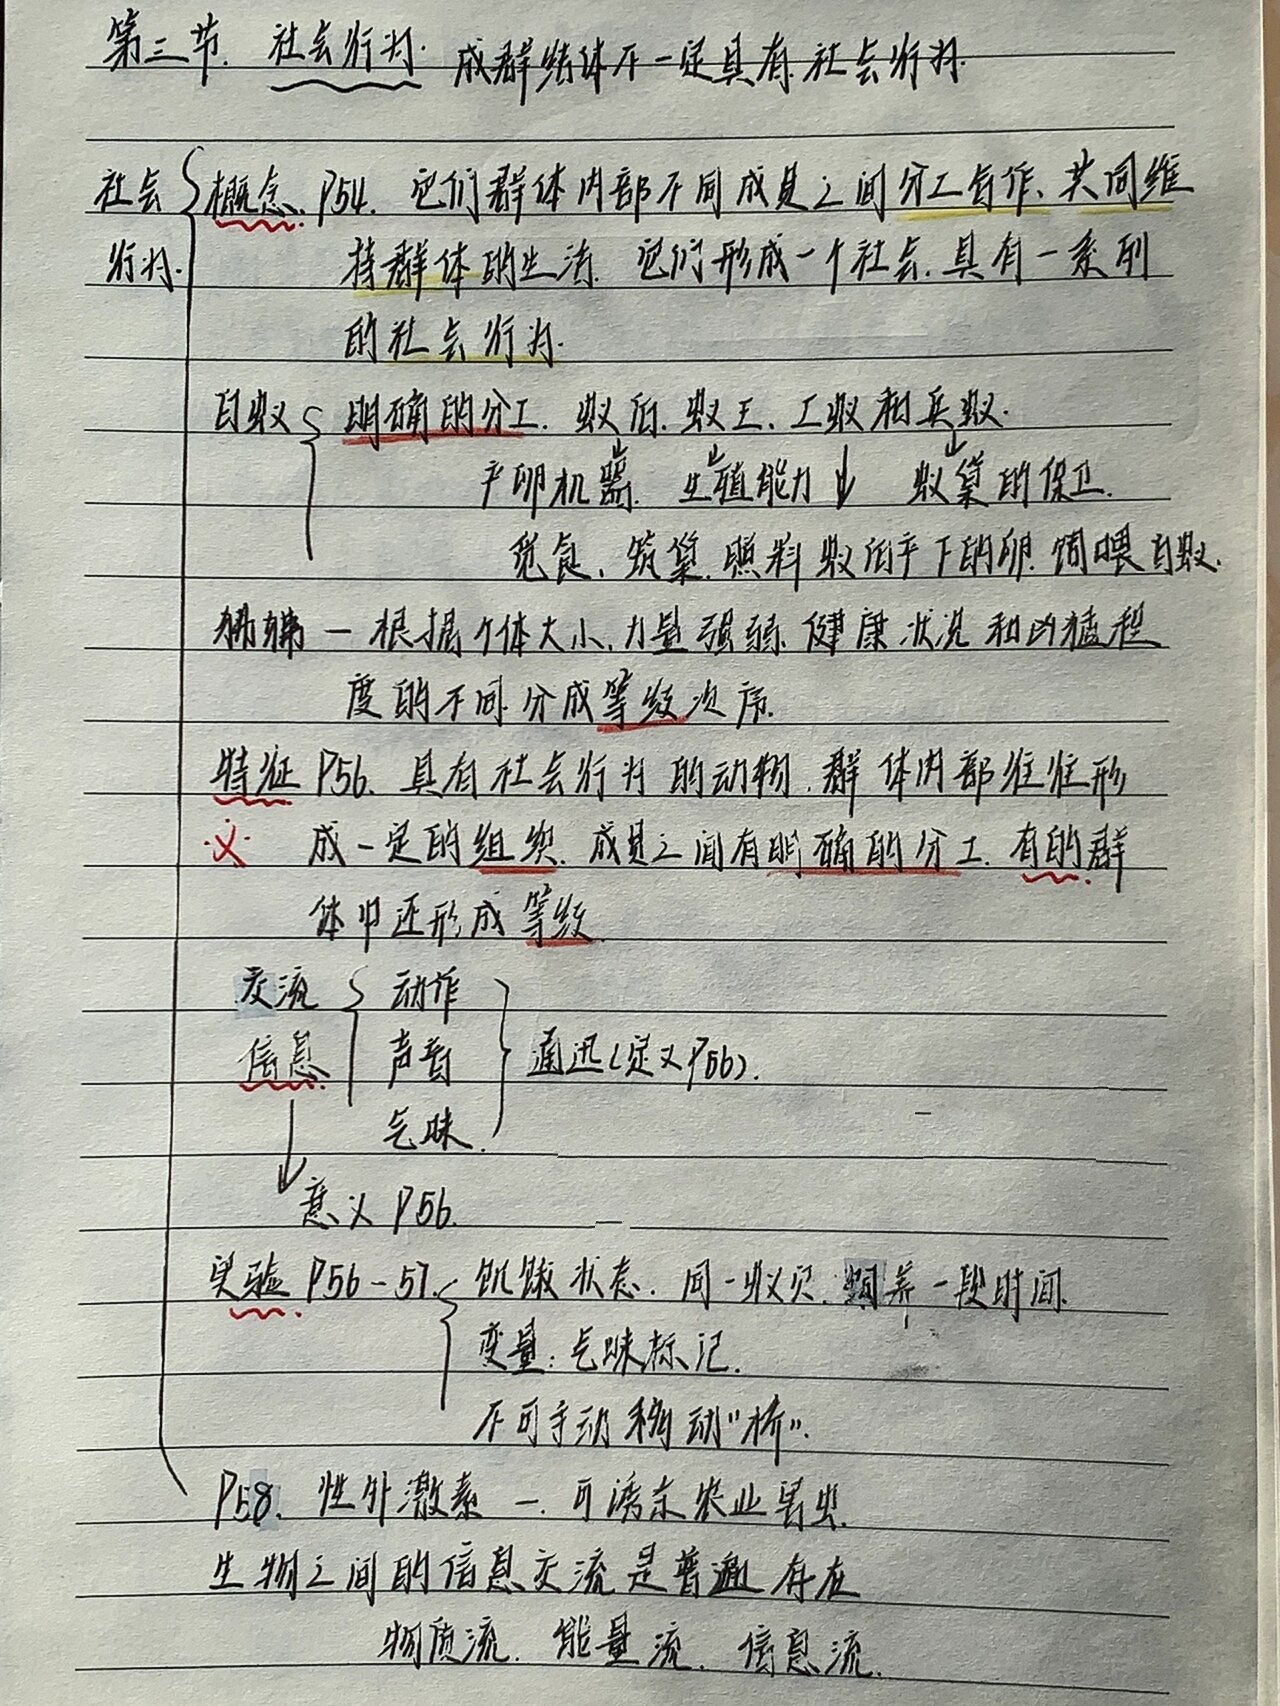 第三节. 社会行为. 成群结体不一定具有社会行为.
社会 概念. P54. 它们群体内部不同成员之间分工合作、共同维
行为. 持群体的生活. 它们形成一个社会. 具有一系列
的社会行为.
白蚁 明确的分工. 蚁后. 蚁王、工蚁和兵蚁.
产卵机器. 生殖能力 ↓ 蚁巢的保卫.
觅食、筑巢. 照料蚁后产下的卵. 饲喂白蚁.
狒狒 — 根据个体大小、力量强弱. 健康状况和凶猛程
度的不同. 分成等级次序.
特征 P56. 具有社会行为的动物. 群体内部往往形
成一定的组织. 成员之间有明确的分工. 有的群
体中还形成等级.
交流 动作
信息 声音 通迅(定义P56).
气味.
意义 P56.
实验 P56-57. 饥饿状态. 同一蚁穴. 饲养一段时间.
变量: 气味标记.
不可手动移动"桥".
P58. 性外激素 — 可诱杀农业害虫.
生物之间的信息交流是普遍存在
物质流. 能量流. 信息流.